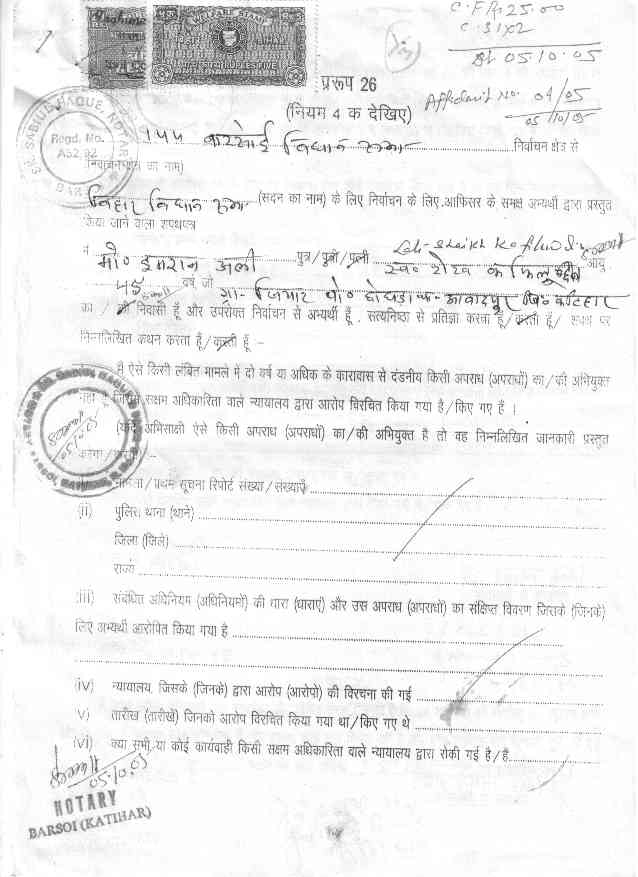 WELFARE STAMP
C.F.R. 25.00
05.10.05
प्ररूप 26
(नियम 4 क देखिए)
Affidavit No. 04/05
05/10/05
SK. SABIUL HAQUE, NOTARY
Regd. No.
बारसोई विधान सभा निर्वाचन क्षेत्र से
(निर्वाचन क्षेत्र का नाम)
बिहार विधान सभा (सदन का नाम) के लिए निर्वाचन के लिए आफिसर के समक्ष अभ्यर्थी द्वारा प्रस्तुत
किया जाने वाला शपथपत्र
Late Sheikh
मैं मो० इमरान अली पुत्र/पुत्री/पत्नी स्व० शेख आयु
वर्ष, जो ग्रा०- पो० आबादपुर जि० कटिहार
का / की निवासी हूँ और उपरोक्त निर्वाचन से अभ्यर्थी हूँ, सत्यनिष्ठा से प्रतिज्ञा करता हूँ/करती हूँ/ शपथ पर
निम्नलिखित कथन करता हूँ/करती हूँ :-
मैं ऐसे किसी लंबित मामले में दो वर्ष या अधिक के कारावास से दंडनीय किसी अपराध (अपराधों) का/की अभियुक्त
नहीं हूँ जिसमें सक्षम अधिकारिता वाले न्यायालय द्वारा आरोप विरचित किया गया है/किए गए हैं ।
(यदि अभिसाक्षी ऐसे किसी अपराध (अपराधों) का/की अभियुक्त है तो वह निम्नलिखित जानकारी प्रस्तुत
करेगा/करेगी) :-
05.10.05
मामला/प्रथम सूचना रिपोर्ट संख्या/संख्याएँ
(ii) पुलिस थाना (थाने)
जिला (जिले)
राज्य
(iii) संबंधित अधिनियम (अधिनियमों) की धारा (धाराएं) और उस अपराध (अपराधों) का संक्षिप्त विवरण जिसके (जिनके)
लिए अभ्यर्थी आरोपित किया गया है
(iv) न्यायालय, जिसके (जिनके) द्वारा आरोप (आरोपों) की विरचना की गई
(v) तारीख (तारीखें) जिनको आरोप विरचित किया गया था/किए गए थे
(vi) क्या सभी या कोई कार्यवाही किसी सक्षम अधिकारिता वाले न्यायालय द्वारा रोकी गई है/हैं
05.10.05
NOTARY
BARSOI (KATIHAR)